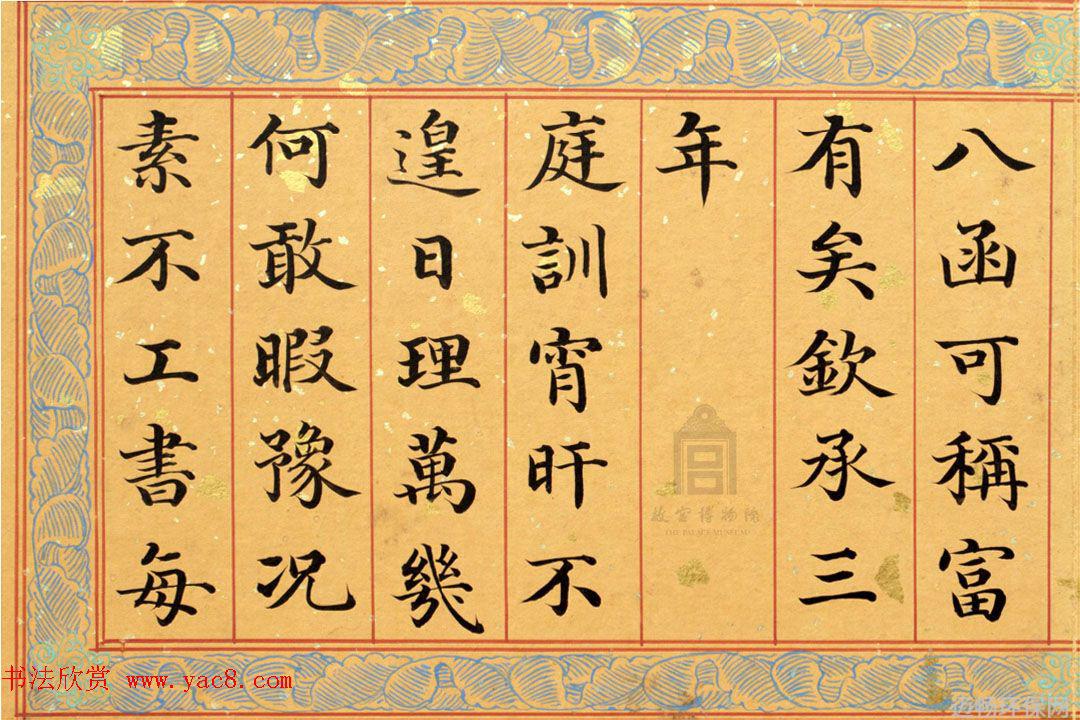 八函可稱富
有矣欽承三
年
庭訓宵旰不
遑日理萬幾
何敢暇豫況
素不工書每
故宮博物院
THE PALACE MUSEUM
书法欣赏 www.yac8.com